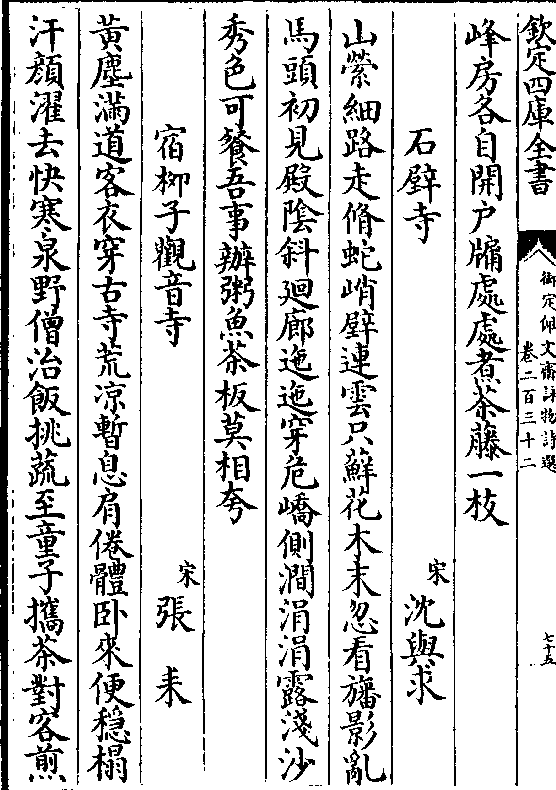 欽定四庫全書
御定佩文齋詠物詩選
卷二百三十二
七十五
峰房各自開戶牖處處煮茶藤一枝
石壁寺
宋沈與求
山縈細路走脩蛇峭壁連雲只蘚花木末忽看旛影亂
馬頭初見殿陰斜廻廊迤迤穿危嶠側澗涓涓露淺沙
秀色可餐吾事辦粥魚茶板莫相夸
宿柳子觀音寺
宋張耒
黃塵滿道客衣穿古寺荒凉暫息肩倦體臥來便穩榻
汗顏濯去快寒泉野僧治飯挑蔬至童子攜茶對客煎